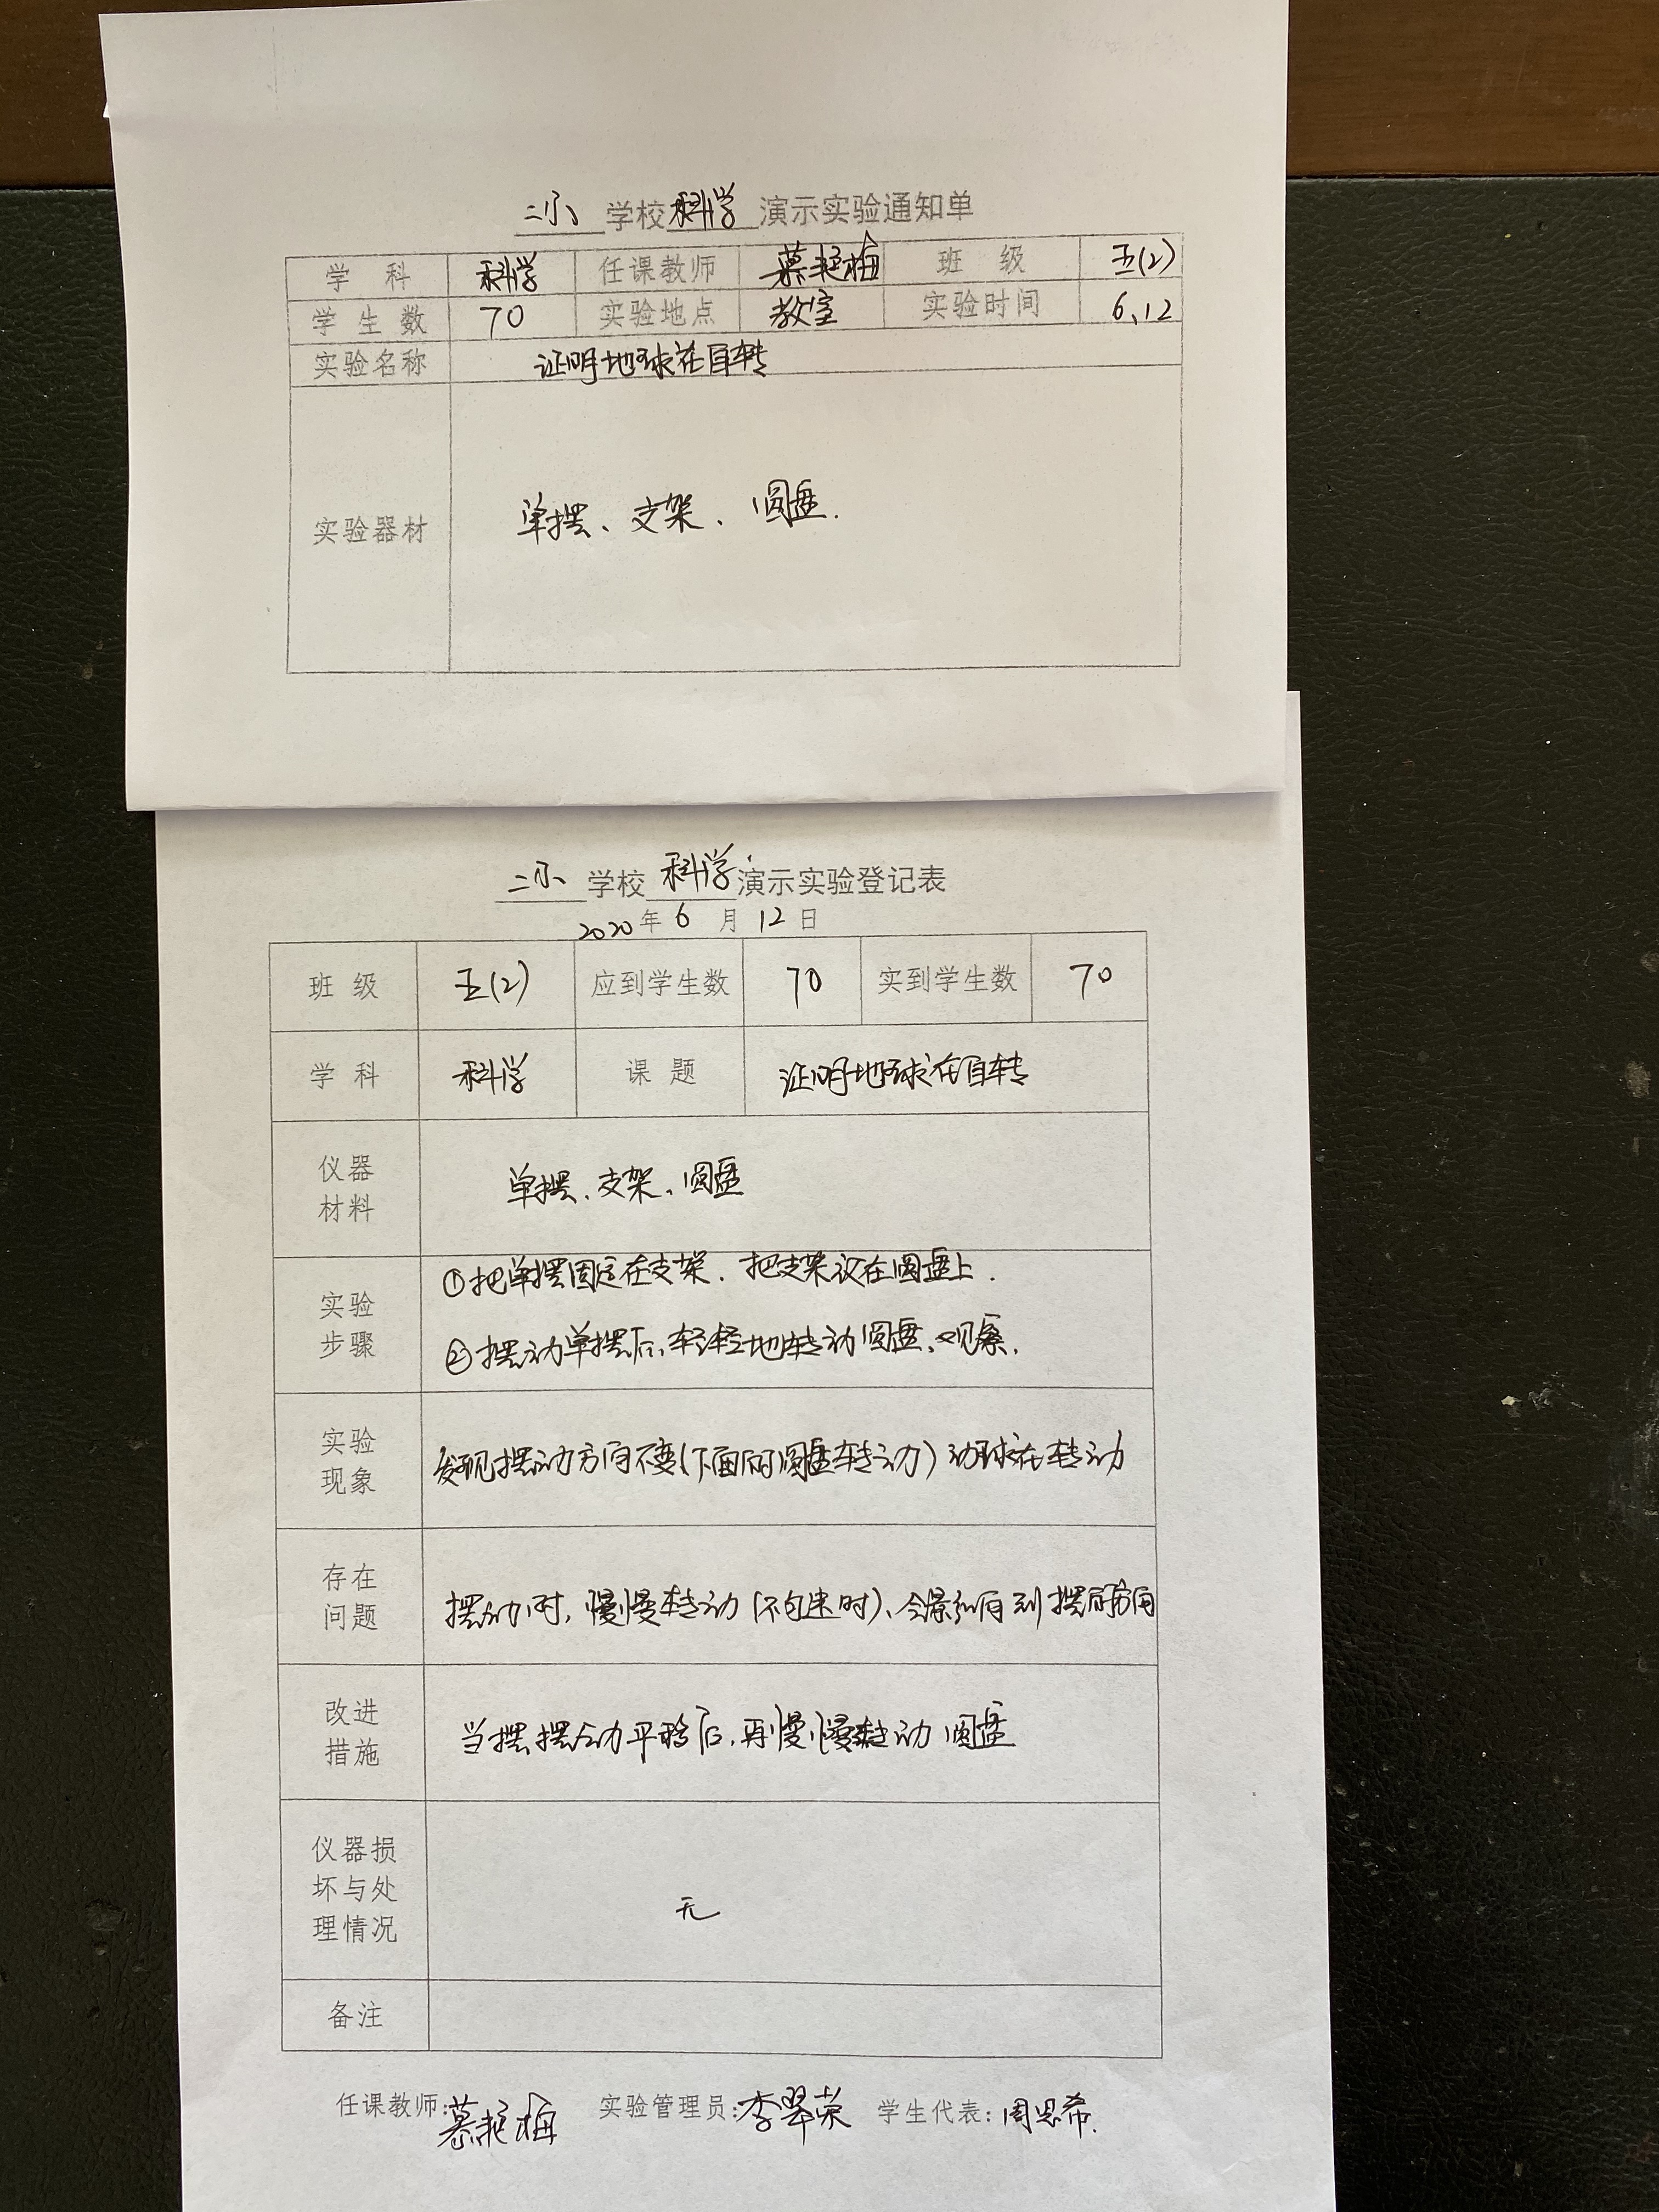 二小 学校 科学 演示实验通知单
学 科 科学 任课教师 慕艳梅 班 级 五(2)
学生数 70 实验地点 教室 实验时间 6、12
实验名称 证明地球在自转
实验器材 单摆、支架、圆盘.
二小 学校 科学 演示实验登记表
2020年 6 月 12 日
班 级 五(2) 应到学生数 70 实到学生数 70
学 科 科学 课 题 证明地球在自转
仪器
材料
单摆、支架、圆盘
实验
步骤
①把单摆固定在支架、把支架放在圆盘上.
②摆动单摆后,轻轻地转动圆盘、观察.
实验
现象
发现摆动方向不变(下面的圆盘转动)动球在转动
存在
问题
摆动时,慢慢转动(不匀速时)、会影响到摆的方向
改进
措施
当摆摆动平稳后,再慢慢转动圆盘
仪器损
坏与处
理情况
无
备注
任课教师:慕艳梅 实验管理员:李翠荣 学生代表:周思希.